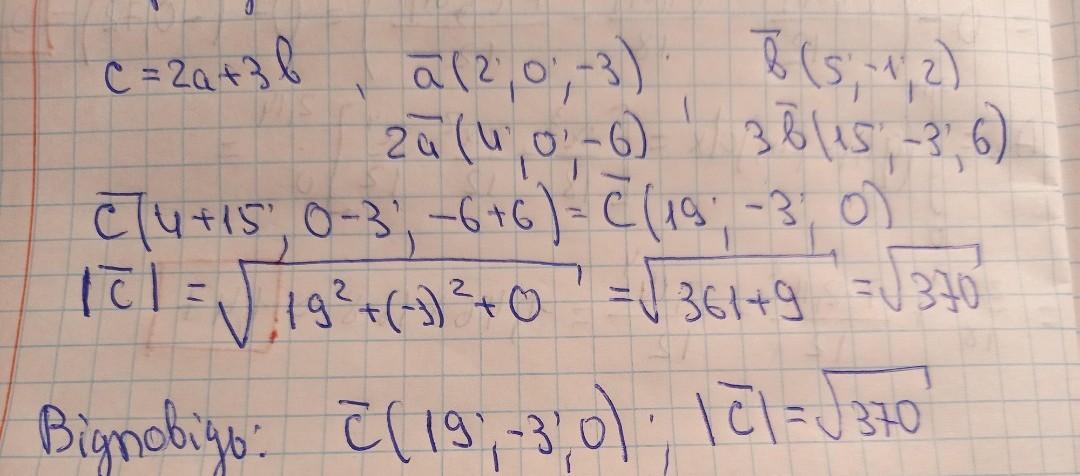 c = 2a + 3b , a̅ (2; 0; -3) ; b̅ (5; -1; 2)
2a̅ (4; 0; -6) 3b̅ (15; -3; 6)
c̅ (4+15; 0-3; -6+6) = c̅ (19; -3; 0)
|c̅| = √(19² + (-3)² + 0) = √(361+9) = √370
Відповідь: c̅ (19; -3; 0) ; |c̅| = √370